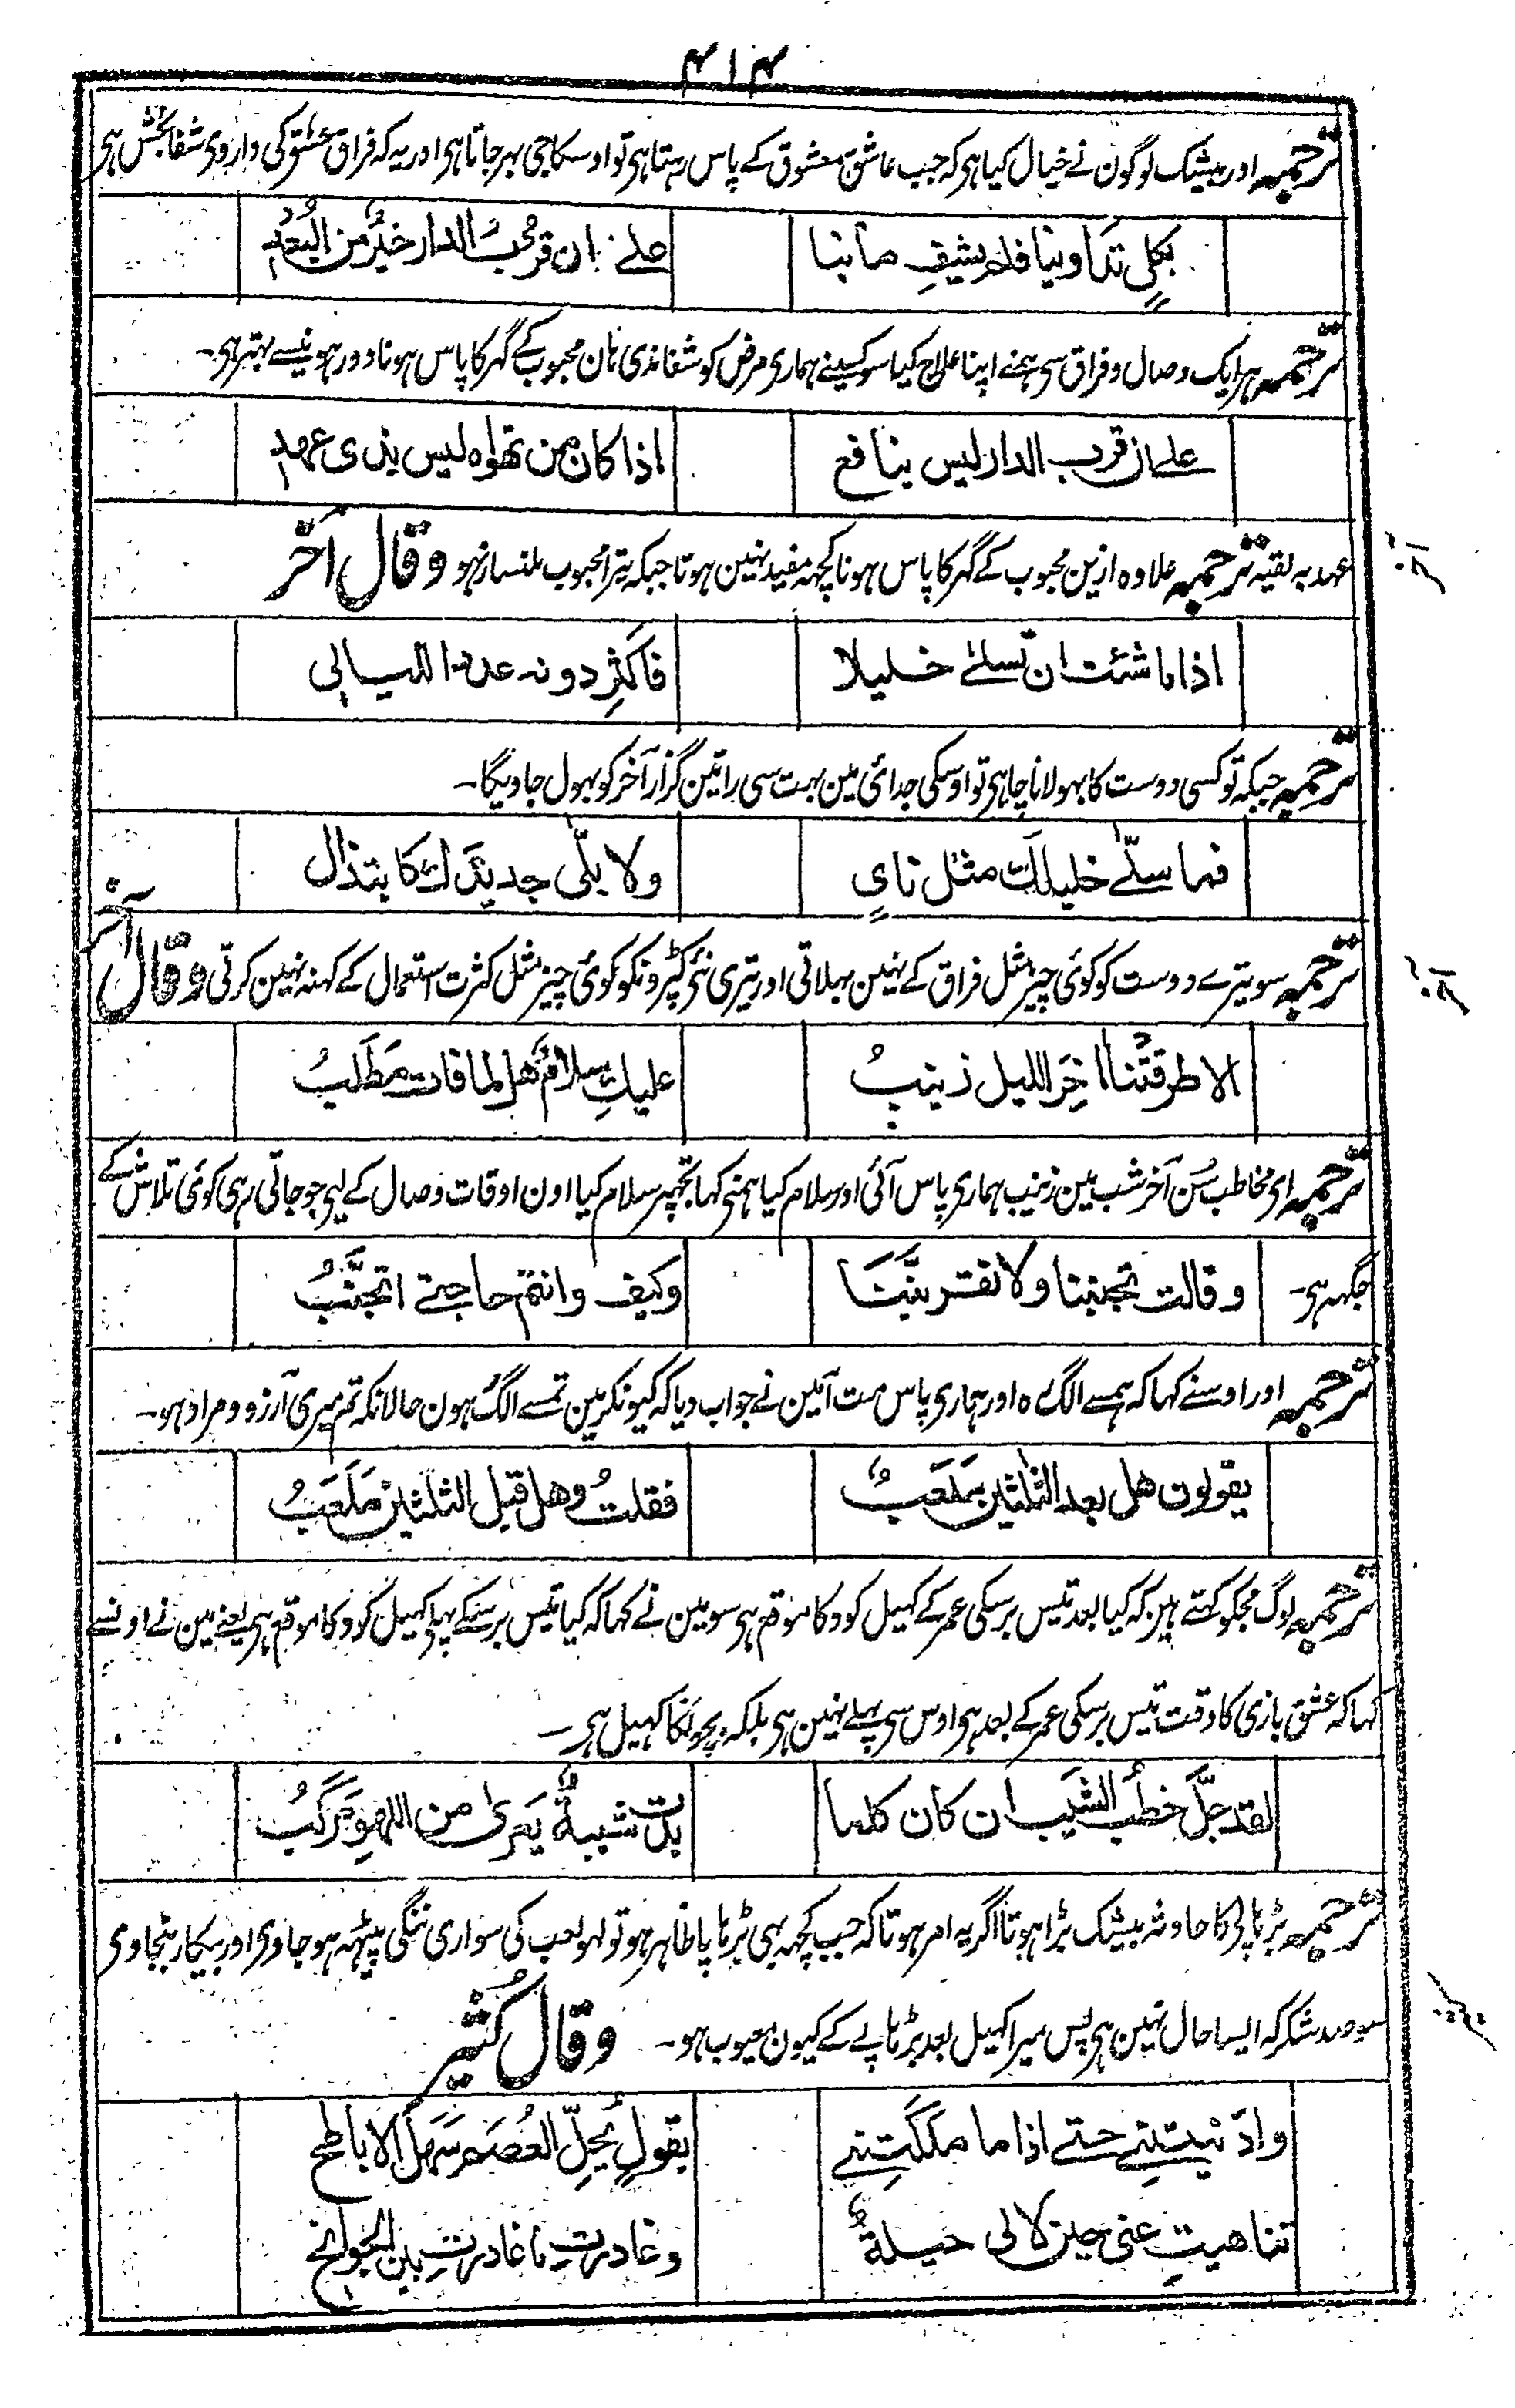 ۴۱۴
ترجمہ اور بیشک لوگون نے خیال کیا ہی کہ جب عاشق معشوق کے پاس رہتا ہی تو اوسکا جی بہر جاتا ہی اور یہ کہ فراق عشق کی داروی شفا بخش ہی
بکلٍّ تداوینا فلم یشفِ ما بنا علے ان قربَ الدار خیرٌ من البُعدِ
ترجمہ ہر ایک وصال و فراق سی ہمنے اپنا علاج کیا سو کسینے ہماری مرض کو شفا ندی ہان محبوب کے گہر کا پاس ہونا دور ہونیسے بہتر ہی۔
علے ان قرب الدار لیس بنافع اذا کان من تھواہ لیس بذی عھدِ
عہد بہ لقیہ ترجمہ علاوہ ازین محبوب کے گہر کا پاس ہونا کچہہ مفید نہین ہوتا جبکہ تیرا محبوب ملنسار نہو وقال آخر
آخر
اذا ما شئت ان تسلےٰ خلیلا فاکثِر دونہ عدد اللیالی
ترجمہ جبکہ تو کسی دوست کا بہولانا چاہی تو اوسکی جدائی مین بہت سی راتین گزار آخر کو بہول جاویگا۔
فما سلّےٰ خلیلَک مثل نایٍ ولا بلّی جدیدَک کابتذال
ترجمہ سو تیرے دوست کو کوئی چیز مثل فراق کے نہین بہلاتی اور تیری نئی کپڑونکو کوئی چیز مثل کثرت استعمال کے کہنہ نہین کرتی وقال آخر
آخر
الا طرقتْنا آخِرَ اللیل زینبُ علیکِ سلامٌ ھل لما فات مَطلَبُ
ترجمہ ای مخاطب سُن آخر شب مین زینب ہماری پاس آئی اور سلام کیا ہمنی کہا تجہپر سلام کیا اون اوقات وصال کے لیی جو جاتی رہی کوئی تلاش کے
جگہہ ہی۔ وقالت تجنبنا ولا تقربنَّنَا وکیف وانتم حاجتے اتجنَّبُ
ترجمہ اور اوسنے کہا کہ ہمسے الگ رہ اور ہماری پاس مت آ مین نے جواب دیا کہ کیونکر مین تمسے الگ ہون حالانکہ تم میری آرزو و مراد ہو۔
یقولون ھل بعد الثلثین مَلعَبٌ فقلتُ وھل قبل الثلثین مَلعَبُ
ترجمہ لوگ مجکو کہتے ہین کہ کیا بعد تیس برسکی عمر کے کہیل کود کا موقع ہی سو مین نے کہا کہ کیا تیس برسکے پہلے کہیل کود کا موقع ہی یعنے مین نے اونسے
کہا کہ عشق بازی کا وقت تیس برسکی عمر کے بعد ہی اوس سی پہلے نہین ہی بلکہ بچونکا کہیل ہی۔
لقد جلَّ خطبُ الشَیب ان کان کلما بدت شیبةٌ یَعریٰ من اللھوِ مَرکَبُ
ترجمہ بڑہاپی کا حادثہ بیشک بڑا ہوتا اگر یہ امر ہوتا کہ جب کچہہ بہی بڑہاپا ظاہر ہو تو لہو لعب کی سواری ننگی پیٹہہ ہو جاوی اور بیکار بنجاوی
سو صد شکر کہ ایسا حال نہین ہی پس میرا کہیل بعد بڑہاپے کے کیون معیوب ہو۔ وقال کُثیر
وادنیتِنے حتے اذا ما ملکتِنے بقولٍ یُحِلّ العُصم سَہلَ الاباطح
تناھیتِ عنی حین لا لی حیلةٌ وغادرتِ ما غادرتِ بین الجوانح